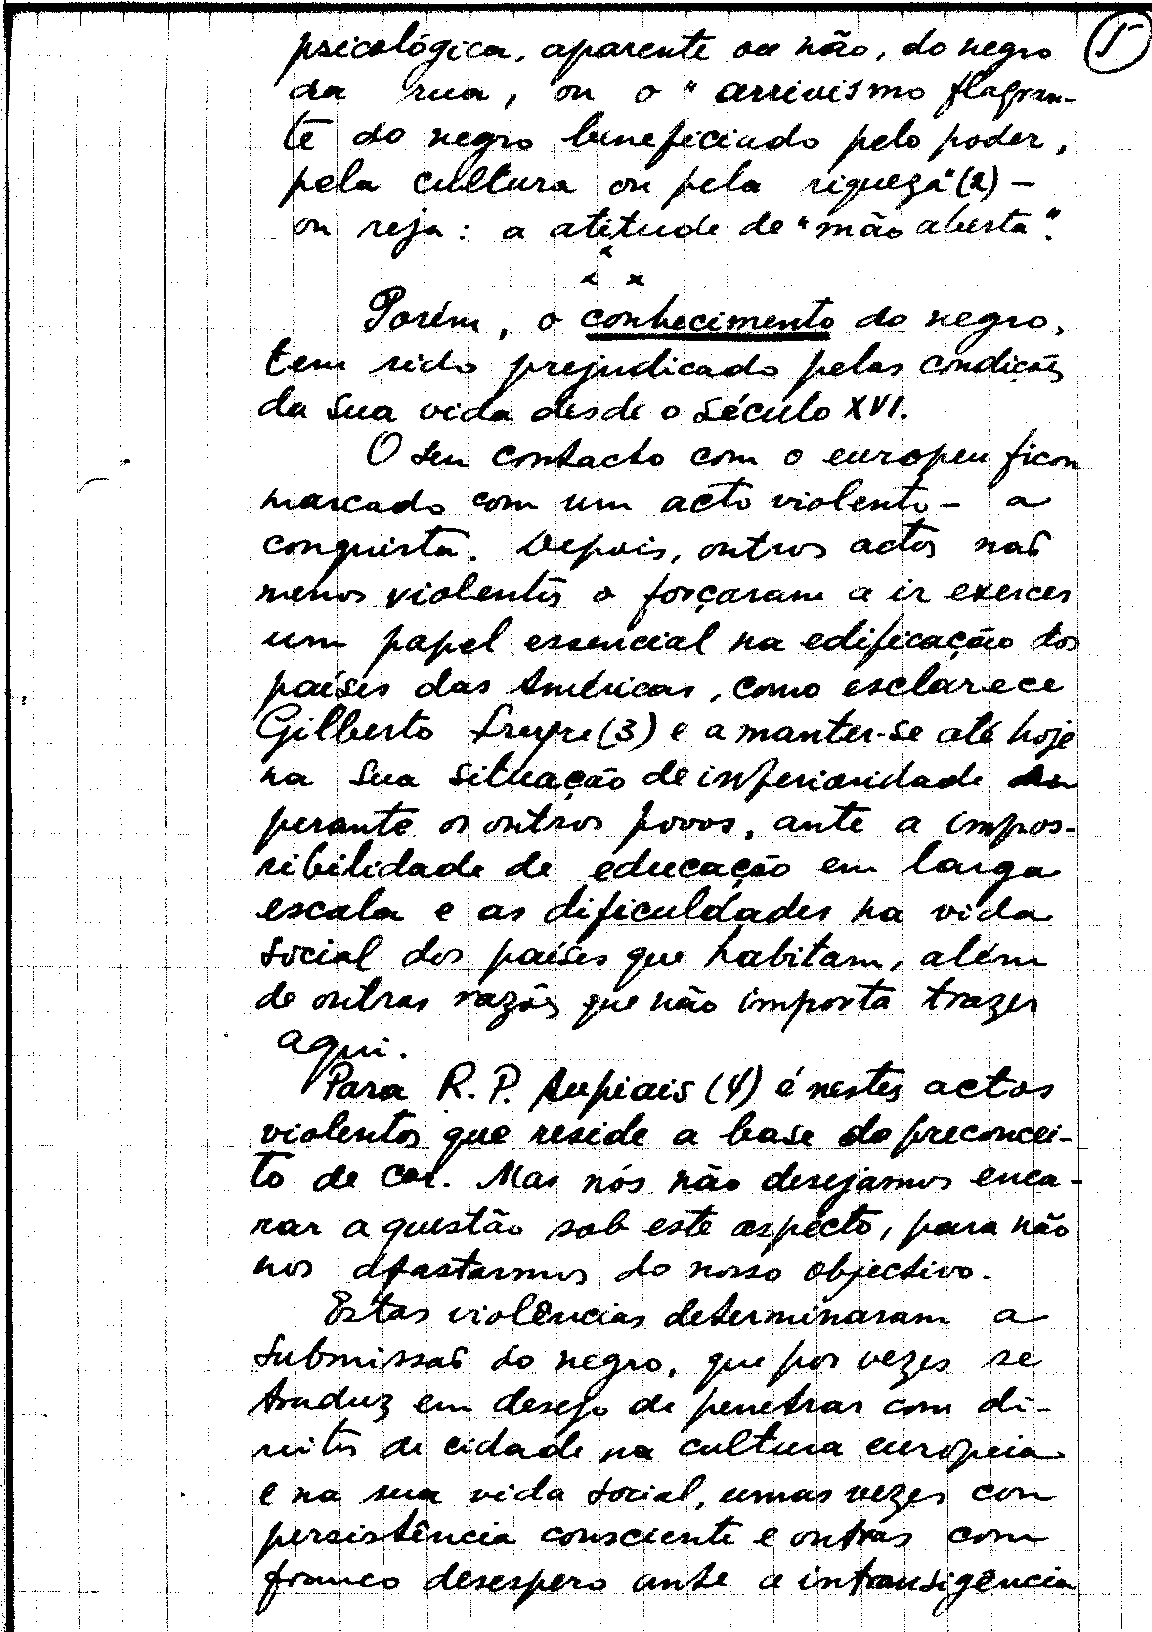 5
psicológica, aparente ou não, do negro
da rua, ou o "arrivismo flagran-
te do negro beneficiado pelo poder,
pela cultura ou pela riqueza" (2) –
ou seja: a atitude de "mão aberta".
x
x x
Porém, o conhecimento do negro,
tem sido prejudicado pelas condições
da sua vida desde o século XVI.
O seu contacto com o europeu ficou
marcado com um acto violento – a
conquista. Depois, outros actos não
menos violentos o forçaram a ir exercer
um papel essencial na edificação dos
países das Américas, como esclarece
Gilberto Freyre (3) e a manter-se até hoje
na sua situação de inferioridade
perante os outros povos, ante a impos-
sibilidade de educação em larga
escala e as dificuldades na vida
social dos países que habitam, além
de outras razões que não importa trazer
aqui.
Para R. P. Aupiais (4) é nestes actos
violentos que reside a base do preconcei-
to de cor. Mas nós não desejamos enca-
rar a questão sob este aspecto, para não
nos afastarmos do nosso objectivo.
Estas violências determinaram a
submissão do negro, que por vezes se
traduz em desejo de penetrar com di-
reitos de cidade na cultura europeia
e na sua vida social, umas vezes com
persistência consciente e outras com
franco desespero ante a intransigência